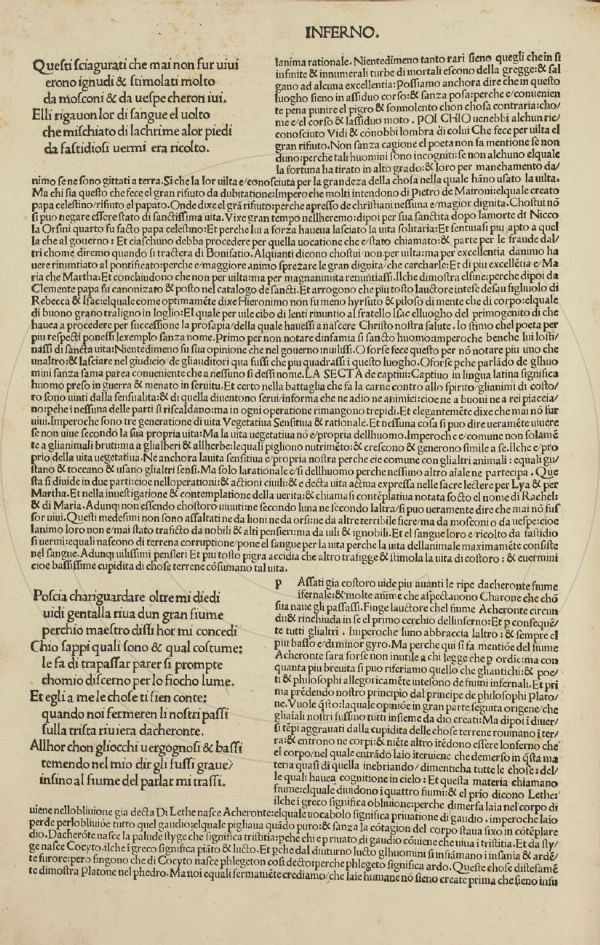 INFERNO.
Questi sciagurati che mai non fur uiui
erono ignudi & stimolati molto
da mosconi & da uespe cheron iui.
Elli rigauon lor di sangue el uolto
che mischiato di lachrime alor piedi
da fastidiosi uermi era ricolto.
lanima rationale. Nientedimeno tanto rari sieno quegli che in si
infinite & innumerali turbe di mortali escono della gregge: & sal
gano ad alcuna excellentia: Possiamo anchora dire che in questo
luogho sieno in assiduo corso: & sanza posa: perche e/conuenien
te pena punire el pigro & sonnolento chon chosa contraria: cho/
me e/el corso & lassiduo moto. POI CHIO uenebbi alchun ric/
conosciuto Vidi & cōnobbi lombra di colui Che fece per uilta el
gran rifiuto. Non sanza cagione el poeta non fa mentione se non
duno: perche tali huomini sono incogniti: se non alchuno elquale
la fortuna ha tirato in alto grado: & loro per manchamento da/
nimo se ne sono gittati a terra. Si che la lor uilta e/conosciuta per la grandeza della chosa nella quale hāno usato la uilta.
Ma chi sia questo che fece el gran rifiuto da dubitatione: Imperoche molti intendono di Pietro de Maironi: elquale creato
papa celestino/ rifiuto el papato. Onde dixe el grā rifiuto: perche apresso de christiani nessuna e/magior dignita. Chostui nō
si puo negare essere stato di sanctissima uita. Vixe gran tempo nellheremo: dipoi per sua sanctita dopo lamorte di Nicco
la Orsini quarto fu facto papa celestino: Et perche lui a forza haueua lasciato la uita solitaria: Et sentiuasi piu apto a quel
la che al gouerno: Et ciaschuno debba procedere per quella uocatione che e/stato chiamato: & parte per le fraude dal/
tri chome diremo quando si tractera di Bonifatio. Alquanti dicono chostui non per uilta: ma per excellentia danimo ha
uere rinuntiato al pontificato: perche e/maggiore animo sprezare le gran dignita/ che cercharle: Et di piu excellētia e/Ma
ria che Martha: Et conchiudono che non per uilta: ma per magnanimita renuntiassi. Ilche dimostra elfine: perche dipoi da
Clemente papa fu canonizato & posto nel catalogo de sancti. Et arrogono che piu tosto lauctore intese desau figluolo di
Rebecca & Isac: elquale come optimamēte dixe Hieronimo non fu meno hyrsuto & piloso di mente che di corpo: elquale
di buono grano traligno in loglio: El quale per uile cibo di lenti rinuntio al fratello Isac elluogho del primogenito di che
haueua a procedere per successione la prosapia/ della quale hauessi a nascere Christo nostra salute. Io stimo chel poeta per
piu respecti ponessi lexemplo sanza nome. Primo per non notare dinfamia si sancto huomo: imperoche benche lui losti/
massi di sancta uita: Nientedimeno fu sua opinione che nel gouerno inuilissi. O forse fece questo per nō notare piu uno che
unaltro: & lasciare nel giudicio de gliauditori qua fussi che piu quadrassi i questo luogho. O forse pche parlādo de glhuo
mini sanza fama parea conueniente che a nessuno si dessi nome. LA SECTA de captiui: Captiuo in lingua latina significa
huomo preso in guerra & menato in seruitu. Et certo nella battaglia che fa la carne contro allo spirito/ glianimi di costo/
ro sono uinti dalla sensualita: & di quella diuentono serui/informa che ne adio ne animici: cioe ne a buoni ne a rei piaccia/
no: pche i nessuna delle parti si riscaldano: ma in ogni operatione rimangono trepidi. Et elegantemēte dixe che mai nō fur
uiui. Imperoche sono tre generatione di uita Vegetatiua Sensitiua & rationale. Et nessuna cosa si puo dire ueramēte uiuere
se non uiue secondo la sua propria uita: Ma la uita uegetatiua nō e/propria dellhuomo. Imperoche e/comune non solamē
te a glianimali brutti: ma a glialberi & allherbe: lequali pigliono nutrimēto: & crescono & generono simile a se. Ilche e/pro
prio della uita uegetatiua. Ne anchora lauita sensitiua e/propria nostra perche e/e comune con glialtri animali: equali gu/
stano & toccano & usano glialtri sensi. Ma solo la rationale e/si dellhuomo perche nessuno altro aīale ne partecipa. Que
sta si diuide in due parti: cioe nelloperationi: & actioni ciuili: & e decta uita actiua expressa nelle sacre lectere per Lya & per
Martha. Et nella inuestigatione & contemplatione della uerita: & chiama si contēplatiua notata sotto el nome di Rachel:
& di Maria. Adunqui non essendo chostoro uiuuti: ne secondo luna ne secondo laltra: si puo ueramente dire che mai nō fus
sor uiui. Questi medesimi non sono assaltati ne da lioni ne da orsi: ne da altre terribile fiere/ma da mosconi o da uespe: cioe
lanimo loro non e/mai stato trafitto da nobili & alti pensieri: ma da uili & ignobili. Et el sangue loro e/ricolto da fastidio
si uermi: equali nascono di terrena corruptione/pone el sangue per la uita perche la uita dellanimale maximamēte consiste
nel sangue. Adunqi uilissimi pensieri Et piu tosto pigra accidia che altro trafigge & stimola la uita di costoro: & euermini
cioe bassissime cupidita di chose terrene cōsumano tal uita.
Poscia chariguardare oltre mi diedi
uidi gentalla riua dun gran fiume
perchio maestro dissi hor mi concedi
Chio sappi quali sono & qual costume:
le fa di trapassar parer si prompte
chomio discerno per lo fiocho lume.
Et egli a me le chose ti sien conte:
quando noi fermeren li nostri passi
sulla trista riuiera dacheronte.
Allhor chon gliocchi uergognosi & bassi
temendo nel mio dir gli fussi graue/
insino al fiume del parlar mi trassi.
P Assati gia costoro uide piu auanti le ripe dacheronte fiume
ifernale: & molte anime che aspectauono Charone che chō
sua naue gli passassi. Finge lauctore chel fiume Acheronte circun
di: & rinchiuda in se el primo cerchio dellinferno: Et p consequē
te tutti glialtri. Imperoche luno abbraccia laltro: & sempre el
piu basso e/di minor gyro. Ma perche qui si fa mentiōe del fiume
Acheronte sara forse non inutile a chi legge che p ordie: ma con
quanta piu breuita si puo riferiamo quello che gliantichi: & poe/
ti & philosophi allegoricamēte intesono de fiumi infernali. Et pri
ma prēdendo nostro principio dal principe de philosophi Plato/
ne. Vuole q̄sto: laquale opiniōe in gran parte seguita origene/che
gliaiali nostri fussino tutti insieme da dio creati: Ma dipoi i diuer/
si tēpi aggrauati dalla cupidita delle chose terrene rouinano i ter/
ra: & entrono ne corpi: & niēte altro itēdono essere lonferno che
el corpo/nel quale entrādo laīo iteruiene che demerso in q̄sta ma
teria quasi di quella inebriando/ dimenticha tutte le chose: del/
le quali hauea cognitione in cielo: Et questa materia chiamano
fiume: elquale diuidono i quattro fiumi: & el prio dicono Lethe:
ilche i greco significa obliuione: perche dimersa laīa nel corpo di
uiene nellobliuione gia decta Di Lethe nasce Acheronte: elquale uocabolo significa priuatione di gaudio. imperoche laīo
perde per lobliuiōe tutto quel gaudio: elquale pigliaua quādo puro: & sanza la cōtagion del corpo staua fixo in cōtēplare
dio. Dacherōte nasce la palude styge che significa tristitia: pche chi e priuato di gaudio cōuiene che uiua i tristitia. Et da sty/
ge nasce Cocyto. ilche i greco significa piāto & lucto. Et pche dal diuturno lucto glhuomini si infiamano i insania & ardē/
te furore: pero fingono che di Cocyto nasce phlegeton cosi decto: perche phlegeto significa ardo. Queste chose distesamē
te dimostra Platone nel phedro. Ma noi equali fermamēte crediamo/che laie humane nō sieno create prima che sieno insu